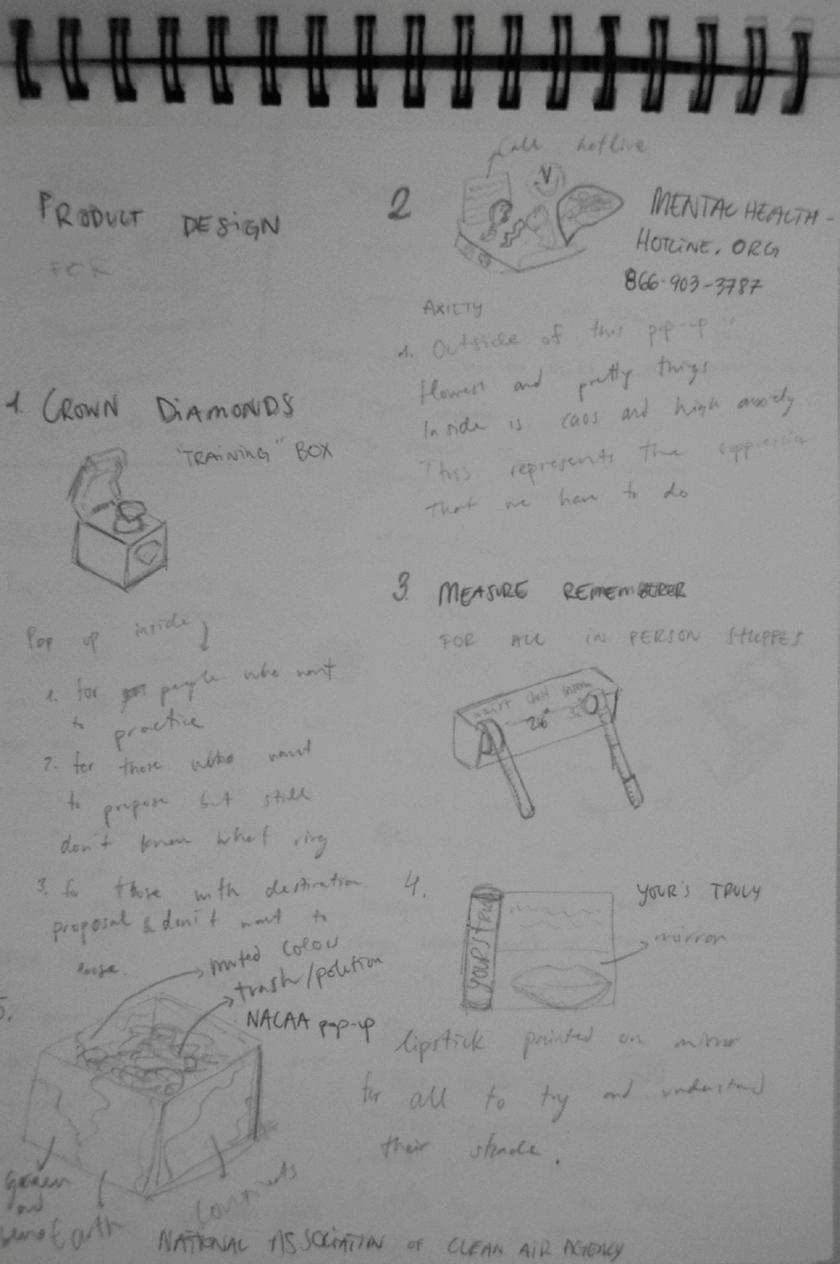 PRODUCT DESIGN
FOR
1. CROWN DIAMONDS
"TRAINING" BOX
Pop up inside
1. for people who want
to practice
2. for those who want
to propose but still
don't know what ring
3. for those with destination
proposal & don't want to
loose.
2
Call hotline
MENTAL HEALTH-
HOTLINE.ORG
866-903-3787
AXIETY
1. Outside of this pop-up is
flowers and pretty things
Inside is caos and high anxiety
This represents the suppression
that we have to do
3. MEASURE REMEMBERER
FOR ALL IN PERSON
waist
26"
4.
YOUR'S TRULY
YOURS TRULY
mirror
lipstick painted on mirror
for all to try and understand
their shade.
5.
muted colour
trash/polution
NACAA pop-up
Green
and
Earth
NATIONAL ASSOCIATION OF CLEAN AIR AGENCY